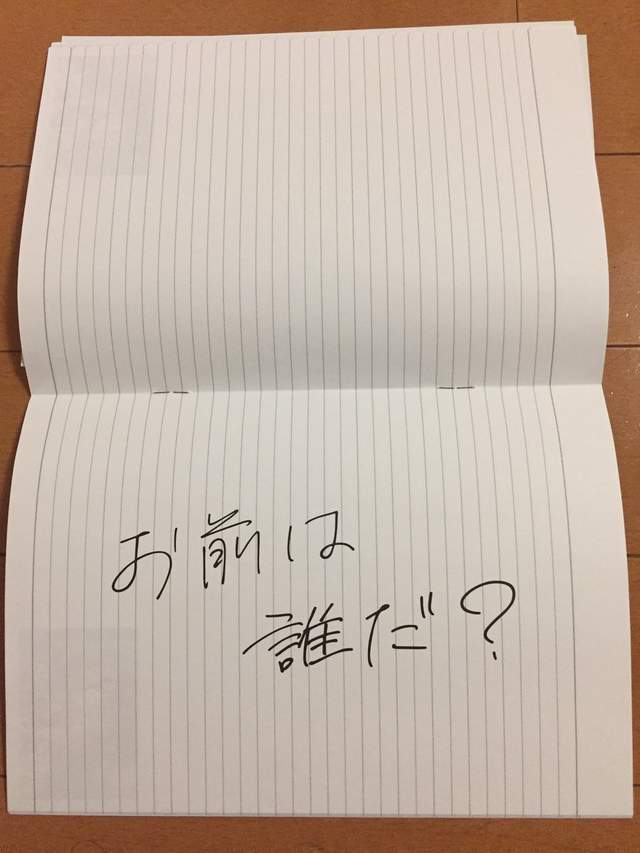 お前は
誰だ?